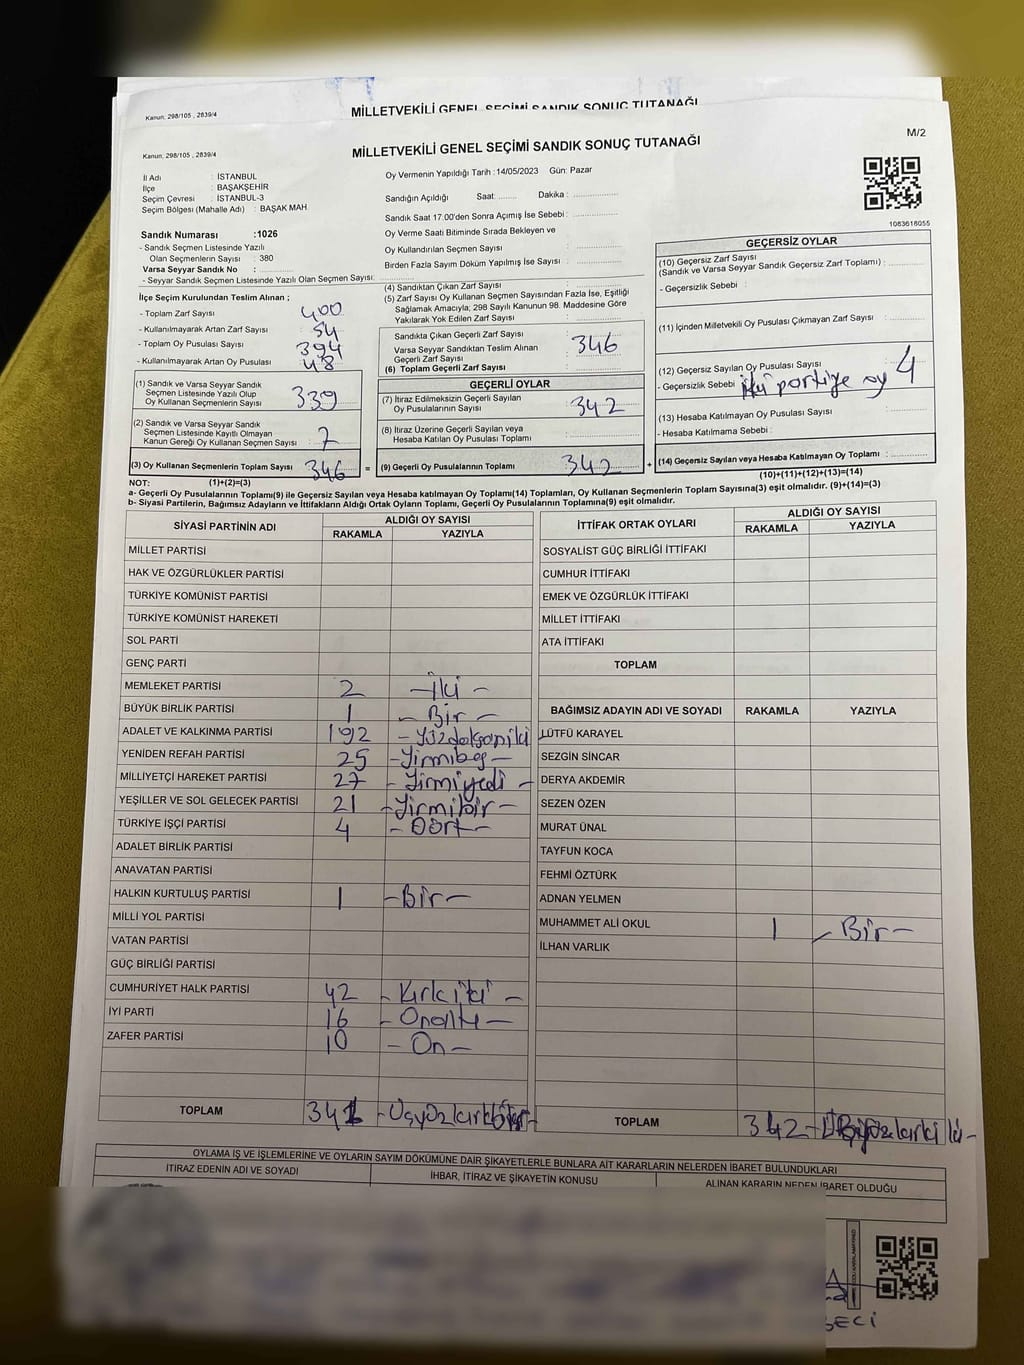 Kanun, 298/105 , 2839/4
MİLLETVEKİLİ GENEL SEÇİMİ SANDIK SONUÇ TUTANAĞI
Kanun, 298/105 , 2839/4
MİLLETVEKİLİ GENEL SEÇİMİ SANDIK SONUÇ TUTANAĞI
M/2
İl Adı : İSTANBUL
İlçe : BAŞAKŞEHİR
Seçim Çevresi : İSTANBUL-3
Seçim Bölgesi (Mahalle Adı) : BAŞAK MAH
Sandık Numarası :1026
- Sandık Seçmen Listesinde Yazılı
Olan Seçmenlerin Sayısı : 380
Varsa Seyyar Sandık No :
- Seyyar Sandık Seçmen Listesinde Yazılı Olan Seçmen Sayısı:
Oy Vermenin Yapıldığı Tarih :14/05/2023 Gün: Pazar
Sandığın Açıldığı Saat: Dakika :
Sandık Saat 17.00'den Sonra Açımış İse Sebebi :
Oy Verme Saati Bitiminde Sırada Bekleyen ve
Oy Kullandırılan Seçmen Sayısı :
Birden Fazla Sayım Döküm Yapılmış İse Sayısı :
1083618055
İlçe Seçim Kurulundan Teslim Alınan ;
- Toplam Zarf Sayısı : 400
- Kullanılmayarak Artan Zarf Sayısı : 54
- Toplam Oy Pusulası Sayısı : 394
- Kullanılmayarak Artan Oy Pusulası : 48
(1) Sandık ve Varsa Seyyar Sandık
Seçmen Listesinde Yazılı Olup
Oy Kullanan Seçmenlerin Sayısı : 339
(2) Sandık ve Varsa Seyyar Sandık
Seçmen Listesinde Kayıtlı Olmayan
Kanun Gereği Oy Kullanan Seçmen Sayısı : 7
(3) Oy Kullanan Seçmenlerin Toplam Sayısı : 346 =
(4) Sandıktan Çıkan Zarf Sayısı :
(5) Zarf Sayısı Oy Kullanan Seçmen Sayısından Fazla İse, Eşitliği
Sağlamak Amacıyla; 298 Sayılı Kanunun 98. Maddesine Göre
Yakılarak Yok Edilen Zarf Sayısı :
Sandıkta Çıkan Geçerli Zarf Sayısı : 346
Varsa Seyyar Sandıktan Teslim Alınan
Geçerli Zarf Sayısı :
(6) Toplam Geçerli Zarf Sayısı :
GEÇERLİ OYLAR
(7) İtiraz Edilmeksizin Geçerli Sayılan
Oy Pusulalarının Sayısı : 342
(8) İtiraz Üzerine Geçerli Sayılan veya
Hesaba Katılan Oy Pusulası Toplamı :
(9) Geçerli Oy Pusulalarının Toplamı : 342 +
GEÇERSİZ OYLAR
(10) Geçersiz Zarf Sayısı
(Sandık ve Varsa Seyyar Sandık Geçersiz Zarf Toplamı) :
- Geçersizlik Sebebi :
(11) İçinden Milletvekili Oy Pusulası Çıkmayan Zarf Sayısı :
(12) Geçersiz Sayılan Oy Pusulası Sayısı : 4
- Geçersizlik Sebebi : İki partiye oy
(13) Hesaba Katılmayan Oy Pusulası Sayısı :
- Hesaba Katılmama Sebebi :
(14) Geçersiz Sayılan veya Hesaba Katılmayan Oy Toplamı :
NOT: (1)+(2)=(3)
(10)+(11)+(12)+(13)=(14)
a- Geçerli Oy Pusulalarının Toplamı(9) ile Geçersiz Sayılan veya Hesaba katılmayan Oy Toplamı(14) Toplamları, Oy Kullanan Seçmenlerin Toplam Sayısına(3) eşit olmalıdır. (9)+(14)=(3)
b- Siyasi Partilerin, Bağımsız Adayların ve İttifakların Aldığı Ortak Oyların Toplamı, Geçerli Oy Pusulalarının Toplamına(9) eşit olmalıdır.
SİYASİ PARTİNİN ADI ALDIĞI OY SAYISI
RAKAMLA YAZIYLA
MİLLET PARTİSİ
HAK VE ÖZGÜRLÜKLER PARTİSİ
TÜRKİYE KOMÜNİST PARTİSİ
TÜRKİYE KOMÜNİST HAREKETİ
SOL PARTİ
GENÇ PARTİ
MEMLEKET PARTİSİ 2 -İki-
BÜYÜK BİRLİK PARTİSİ 1 -Bir-
ADALET VE KALKINMA PARTİSİ 192 -Yüzdoksaniki
YENİDEN REFAH PARTİSİ 25 -Yirmibeş-
MİLLİYETÇİ HAREKET PARTİSİ 27 -Yirmiyedi-
YEŞİLLER VE SOL GELECEK PARTİSİ 21 -Yirmibir-
TÜRKİYE İŞÇİ PARTİSİ 4 -Dört-
ADALET BİRLİK PARTİSİ
ANAVATAN PARTİSİ
HALKIN KURTULUŞ PARTİSİ 1 -Bir-
MİLLİ YOL PARTİSİ
VATAN PARTİSİ
GÜÇ BİRLİĞİ PARTİSİ
CUMHURİYET HALK PARTİSİ 42 -Kırkiki-
İYİ PARTİ 16 -Onaltı-
ZAFER PARTİSİ 10 -On-
TOPLAM 341
İTTİFAK ORTAK OYLARI ALDIĞI OY SAYISI
RAKAMLA YAZIYLA
SOSYALİST GÜÇ BİRLİĞİ İTTİFAKI
CUMHUR İTTİFAKI
EMEK VE ÖZGÜRLÜK İTTİFAKI
MİLLET İTTİFAKI
ATA İTTİFAKI
TOPLAM
BAĞIMSIZ ADAYIN ADI VE SOYADI RAKAMLA YAZIYLA
LÜTFÜ KARAYEL
SEZGİN SİNCAR
DERYA AKDEMİR
SEZEN ÖZEN
MURAT ÜNAL
TAYFUN KOCA
FEHMİ ÖZTÜRK
ADNAN YELMEN
MUHAMMET ALİ OKUL 1 -Bir-
İLHAN VARLIK
TOPLAM 342
OYLAMA İŞ VE İŞLEMLERİNE VE OYLARIN SAYIM DÖKÜMÜNE DAİR ŞİKAYETLERLE BUNLARA AİT KARARLARIN NELERDEN İBARET BULUNDUKLARI
İTİRAZ EDENİN ADI VE SOYADI İHBAR, İTİRAZ VE ŞİKAYETİN KONUSU ALINAN KARARIN NEDEN İBARET OLDUĞU